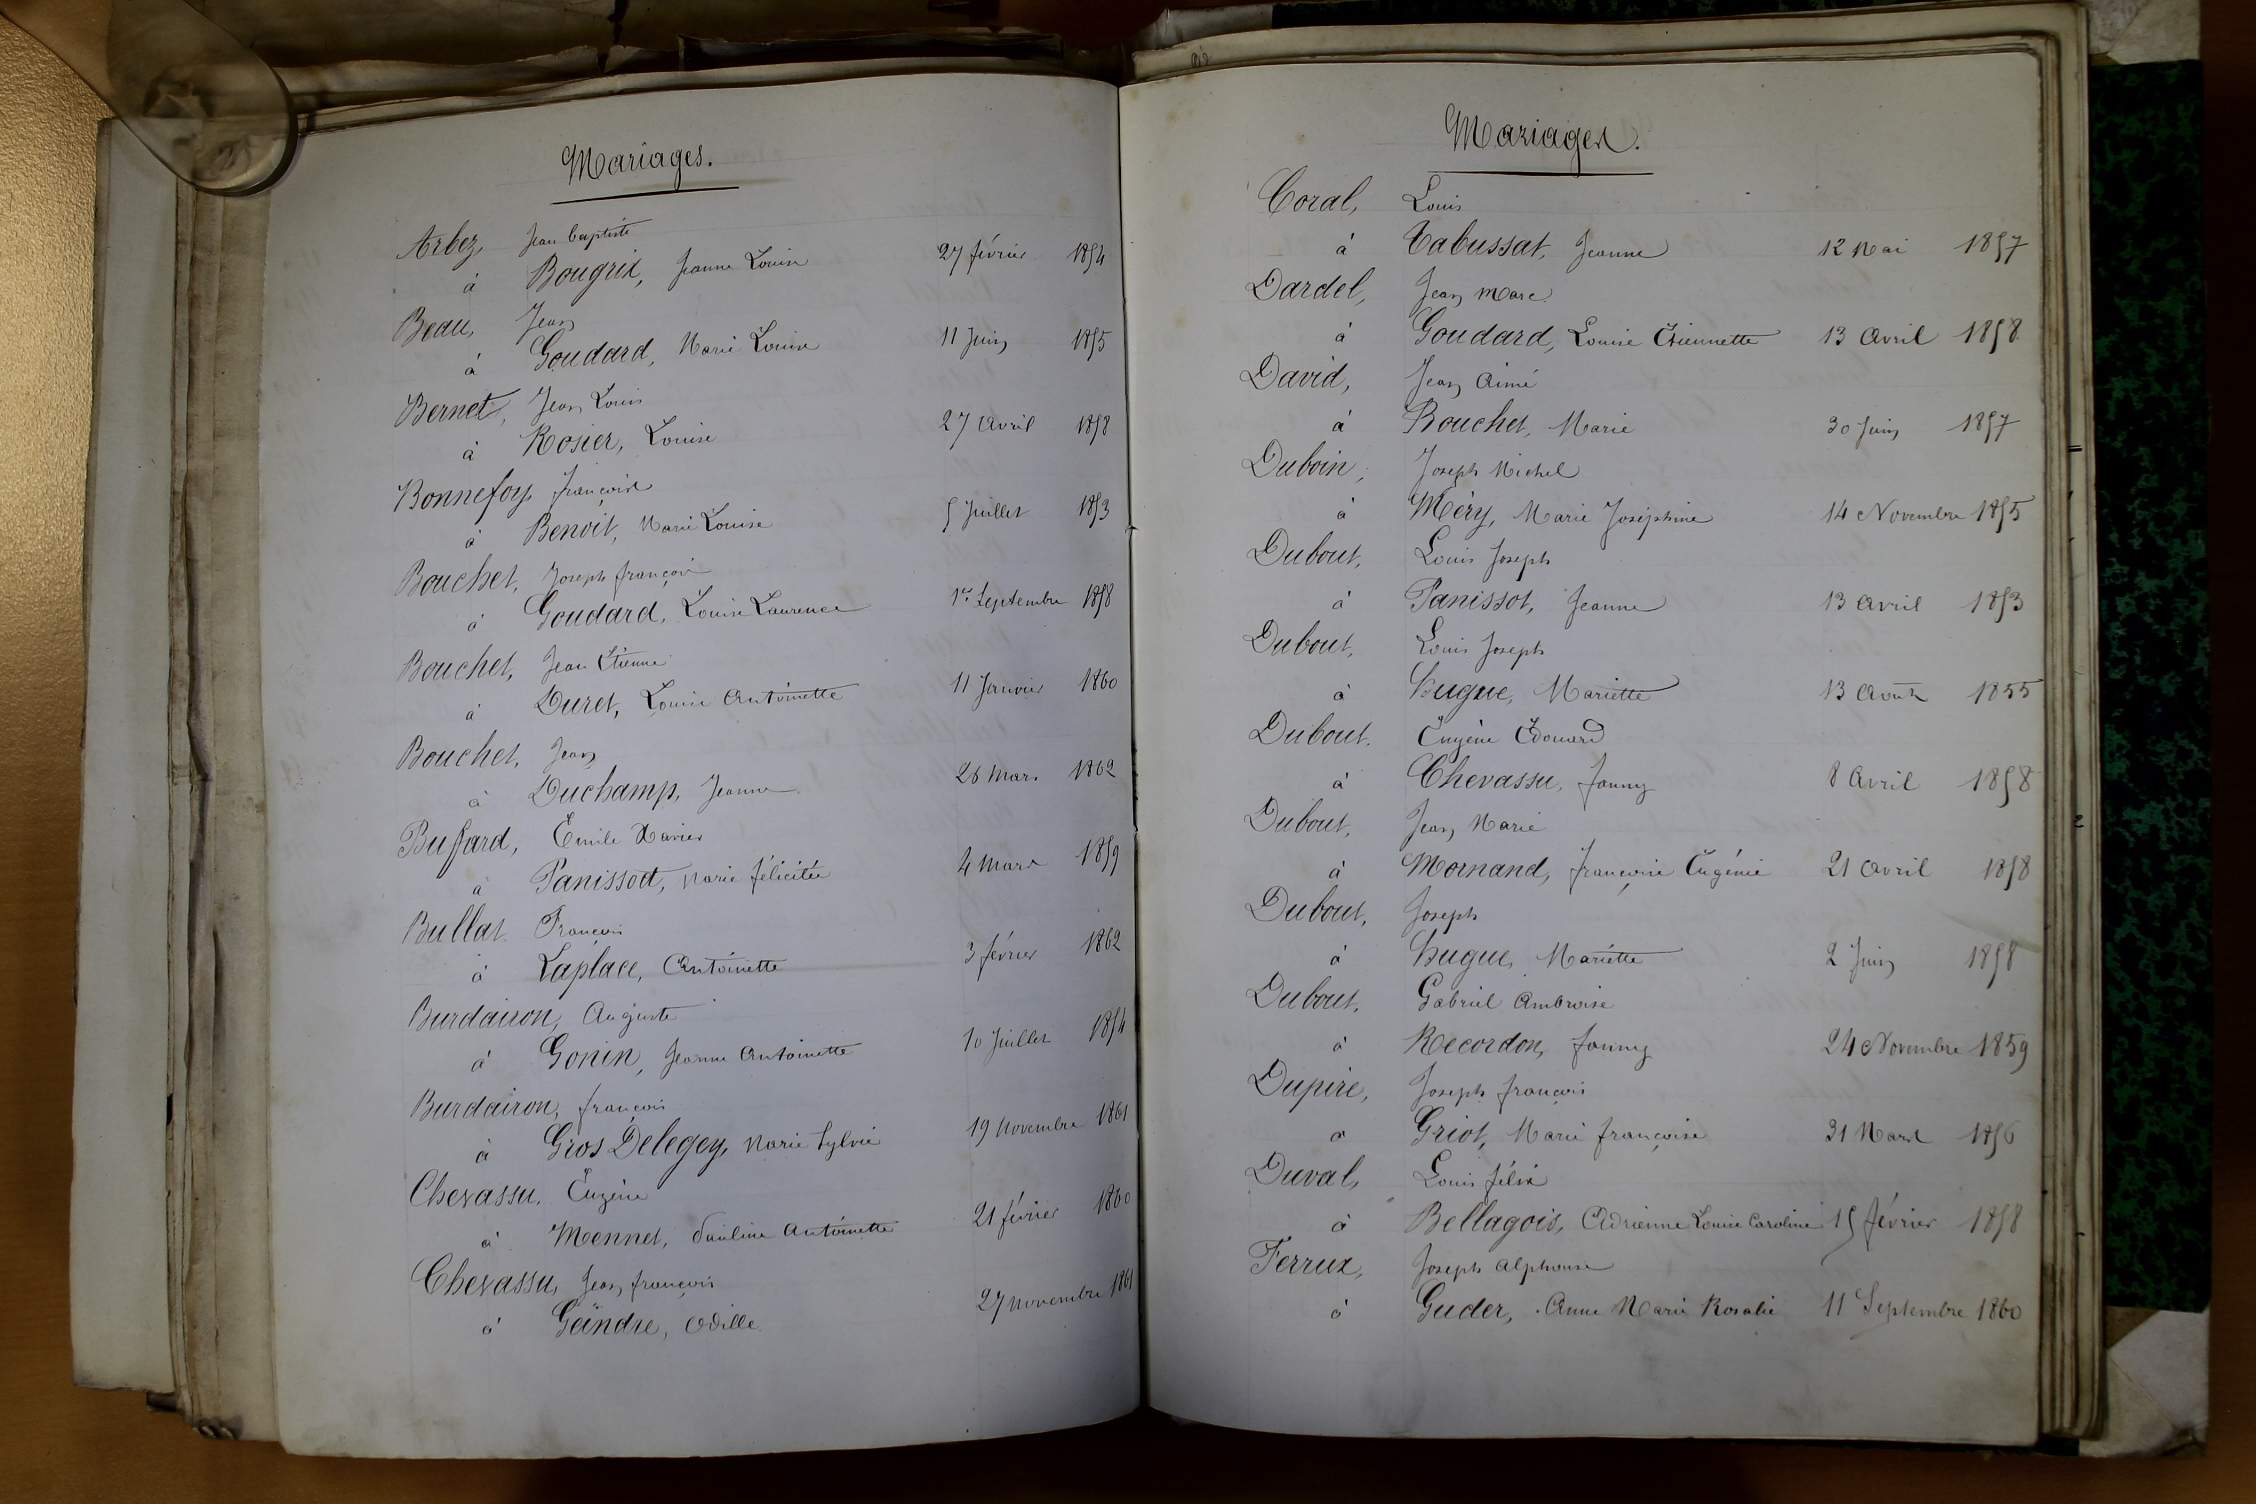 Mariages.
Arbez, Jean Baptiste
à Bougrix, Jeanne Louise 27 février 1854
Beau, Jean
à Goudard, Marie Louise 11 Juin 1855
Bernet, Jean Louis
à Rosier, Louise 27 Avril 1858
Bonnefoy, françois
à Benoit, Marie Louise 5 Juillet 1853
Bouchet, Joseph françois
à Goudard, Louise Laurence 1er Septembre 1858
Bouchet, Jean Étienne
à Duret, Louise Antoinette 11 Janvier 1860
Bouchet, Jean
à Duchamp, Jeanne 26 Mars 1862
Buffard, Émile Xavier
à Panissod, Marie félicitée 4 Mars 1859
Bullat François
à Laplace, Antoinette 3 février 1862
Burdairon, Auguste
à Gonin, Jeanne Antoinette 10 Juillet 1854
Burdairon, françois
à Gros Delegey, Marie Sylvie 19 Novembre 1861
Chevassu, Eugène
à Mennet, Pauline Antoinette 21 février 1860
Chevassu, Jean françois
à Geindre, Odille 27 Novembre 1861
Mariages.
Coral, Louis
à Tabussat, Jeanne 12 Mai 1857
Dardel, Jean Marc
à Goudard, Louise Étiennette 13 Avril 1858
David, Jean Aimé
à Bouchet, Marie 30 Juin 1857
Duboin, Joseph Michel
à Méry, Marie Joséphine 14 Novembre 1855
Dubout, Louis Joseph
à Panissot, Jeanne 13 Avril 1853
Dubout, Louis Joseph
à Hugue, Mariette 13 Août 1855
Dubout, Eugène Édouard
à Chevassu, fanny 8 Avril 1858
Dubout, Jean Marie
à Mornand, françoise Eugénie 21 Avril 1858
Dubout, Joseph
à Hugue, Mariette 2 Juin 1858
Dubout, Gabriel Ambroise
à Recordon, fanny 24 Novembre 1859
Dupire, Joseph françois
à Griot, Marie françoise 31 Mars 1856
Duval, Louis félix
à Bellagois, Adrienne Louise Caroline 15 février 1858
Ferrux, Joseph Alphonse
à Guder, Anne Marie Rosalie 11 Septembre 1860